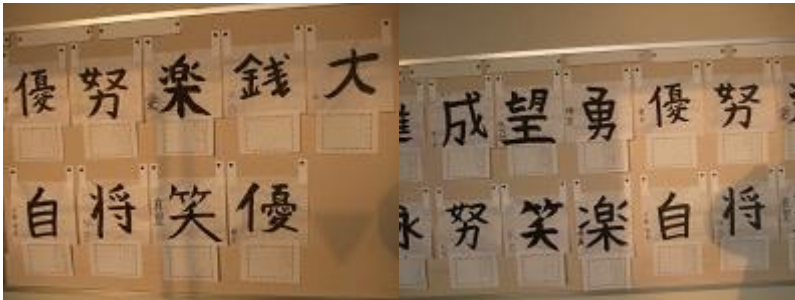 優 努 楽 銭 大
自 将 笑 優
成 望 勇 優 努
努 笑 楽 自 将